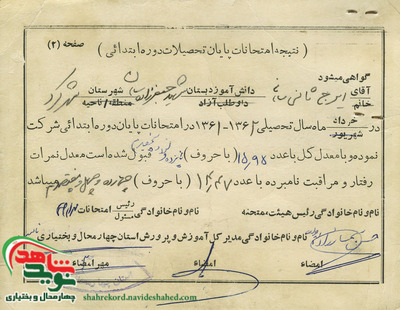 صفحه (۲)
( نتیجه امتحانات پایان تحصیلات دوره ابتدائی )
گواهی میشود
آقای ایرج
خانم
دانش آموز دبستان شهید
داوطلب آزاد
شهرستان شهرکرد
منطقه/ناحیه
در خرداد ماه سال تحصیلی ۱۳۶۲-۱۳۶۱ در امتحانات پایان دوره ابتدائی شرکت
شهریور
نموده و با معدل کل با عدد ( ۱۵/۹۵ ) با حروف ( پانزده و ) قبول شده است معدل نمرات
رفتار و مراقبت نامبرده با عدد ( ۱۴/۴۷ ) ( با حروف ) چهارده و چهل و هفت صدم میباشد
نام و نام خانوادگی رئیس هیئت ممتحنه
نام و نام خانوادگی رئیس امتحانات
مسئول
نام و نام خانوادگی مدیر کل آموزش و پرورش استان چهارمحال و بختیاری
امضاء
امضاء
مهر امضاء
نوید شاهد
چهارمحال و بختیاری
shahrekord.navideshahed.com